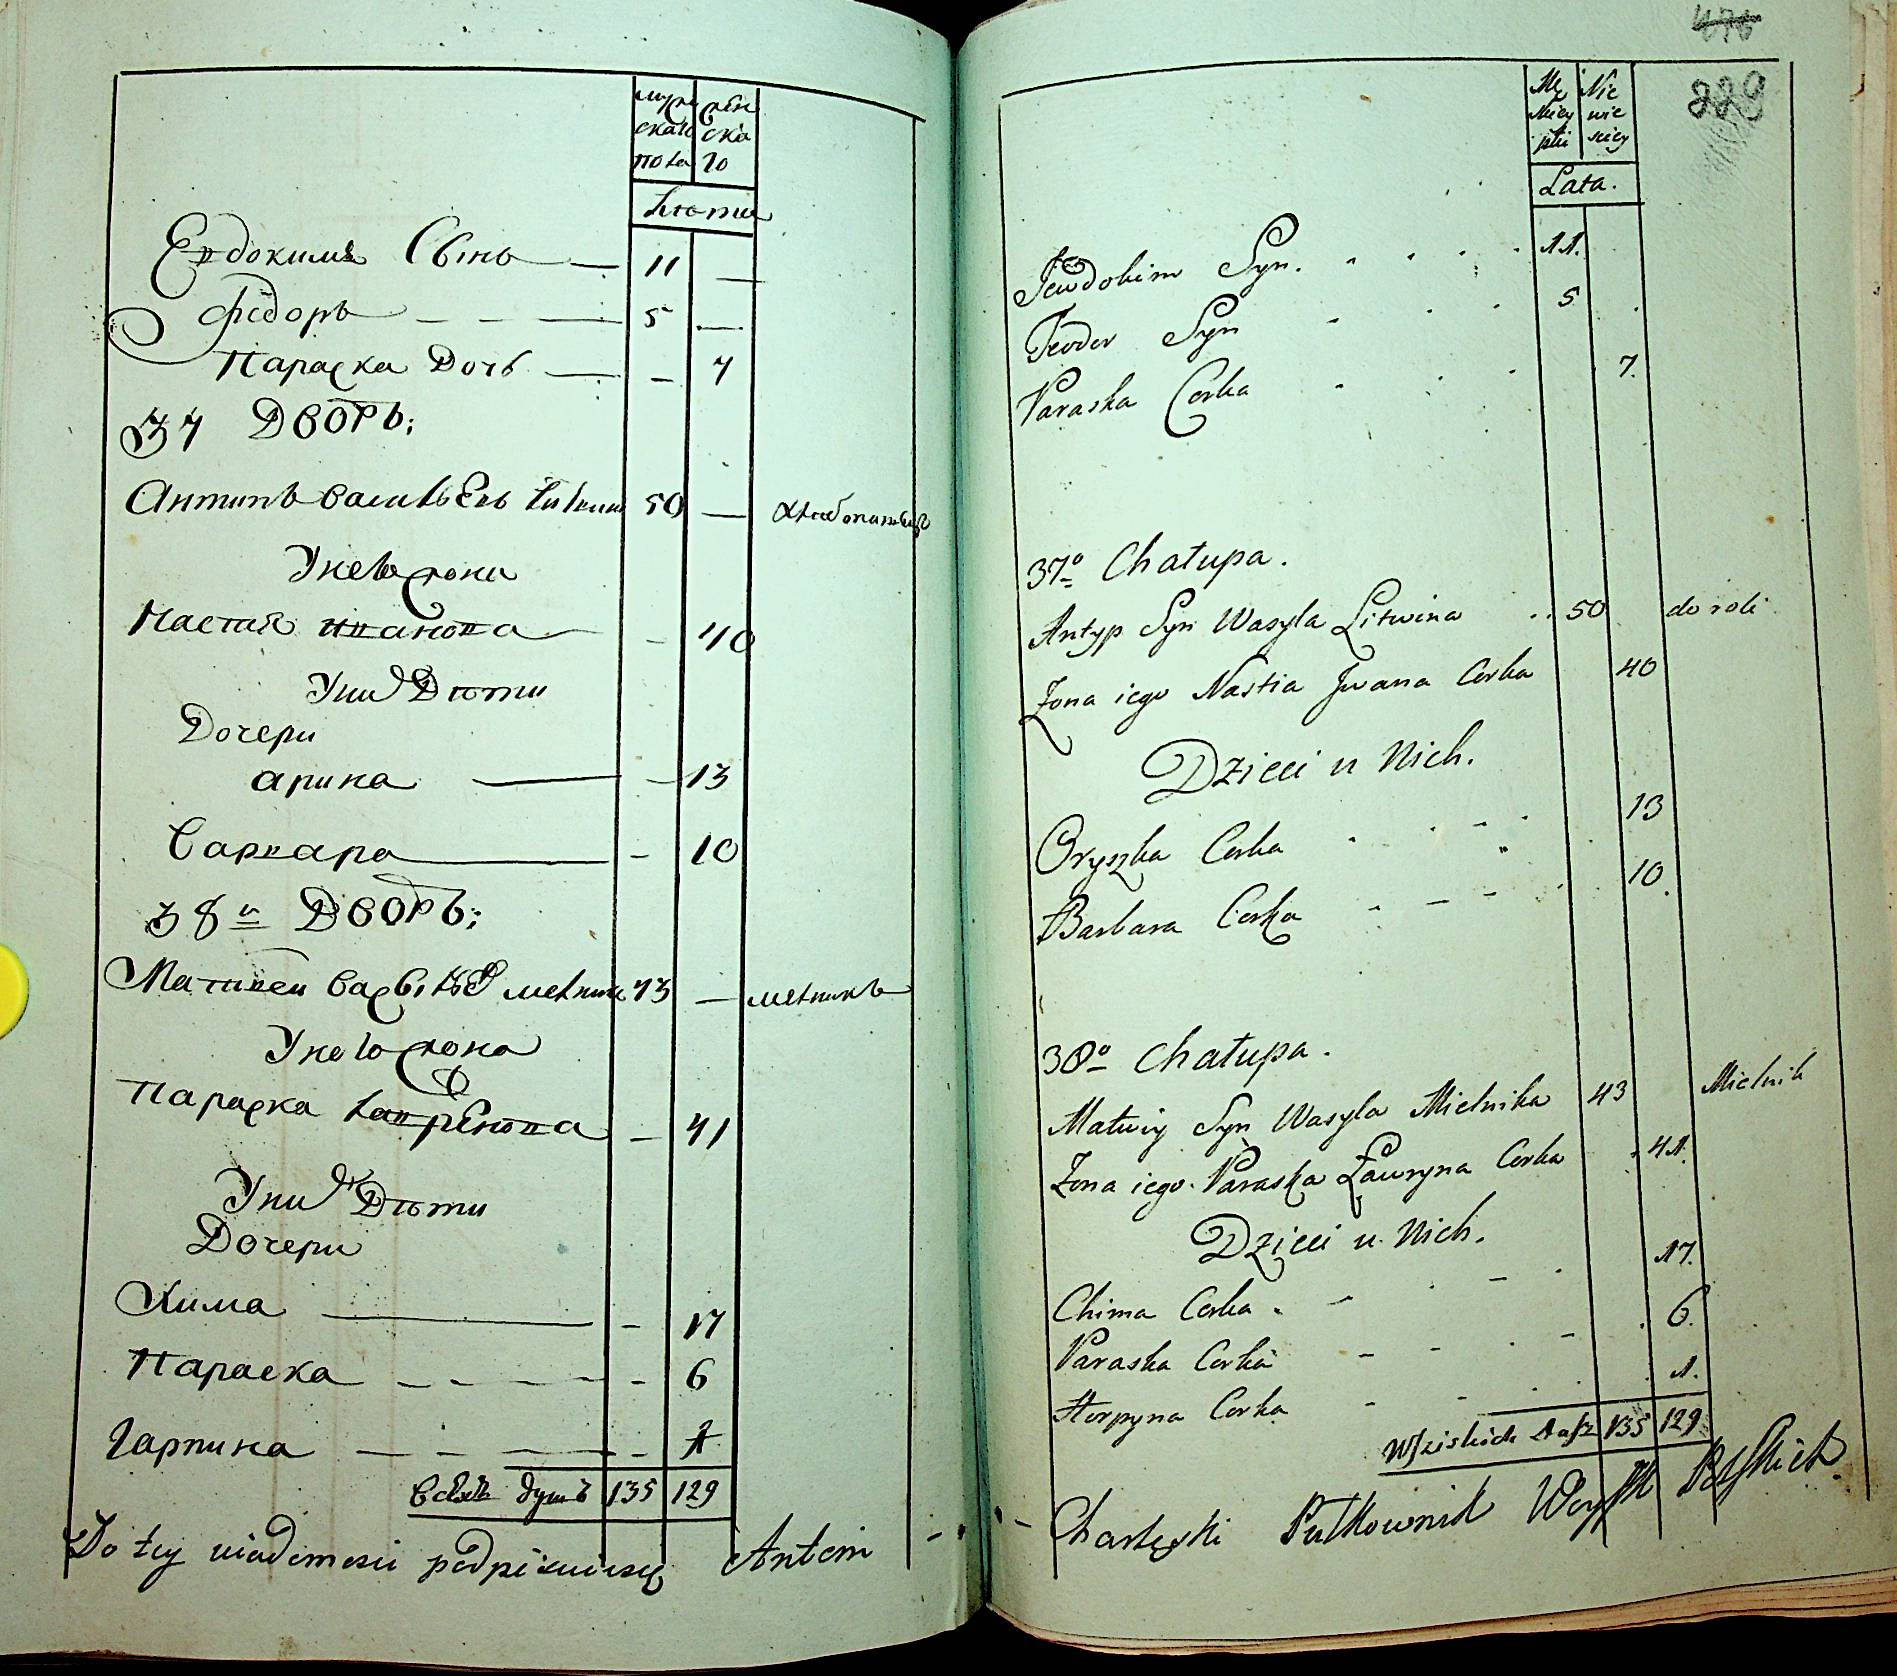 муже
скаго
пола
жен
ска
го
Лѣта
Евдокимъ Сынъ — 11 —
Федоръ — — — 5 —
Параска Дочь — — 7
37 Дворъ;
Антипъ Васильевъ Литвин 50 — хлебопашецъ
У него жона
Настия Иванова — — 40
У них Дѣти
Дочери
Арина — — 13
Варвара — — 10
38й Дворъ;
Матвей Васильев мелник 43 — мелникъ
У него жона
Параска Лавренова — 41
У них Дѣти
Дочери
Хима — — 17
Параска — — — 6
Гарпина — — — 1
Всѣхъ душъ 135 129
Do tey wiadomosci podpisuię się Antoni
476
229
Mę
skiey
płci
Nie
wie
sciey
Lata.
Jewdokim Syn. 11.
Feodor Syn 5
Paraska Corka 7.
37o Chałupa.
Antyp Syn Wasyla Litwina 50 do roli
Zona iego Nastia Jwana Corka 40
Dzieci u Nich.
Oryszka Corka 13
Barbara Corka 10.
38o Chałupa.
Matwiy Syn Wasyla Mielnika 43 Mielnik
Zona iego Paraska Ławryna Corka 41.
Dzieci u Nich.
Chima Corka 17.
Paraska Corka 6.
Horpyna Corka 1.
Wszistkich dusz 135 129
Charlęski Pułkownik Woysk Polskich.